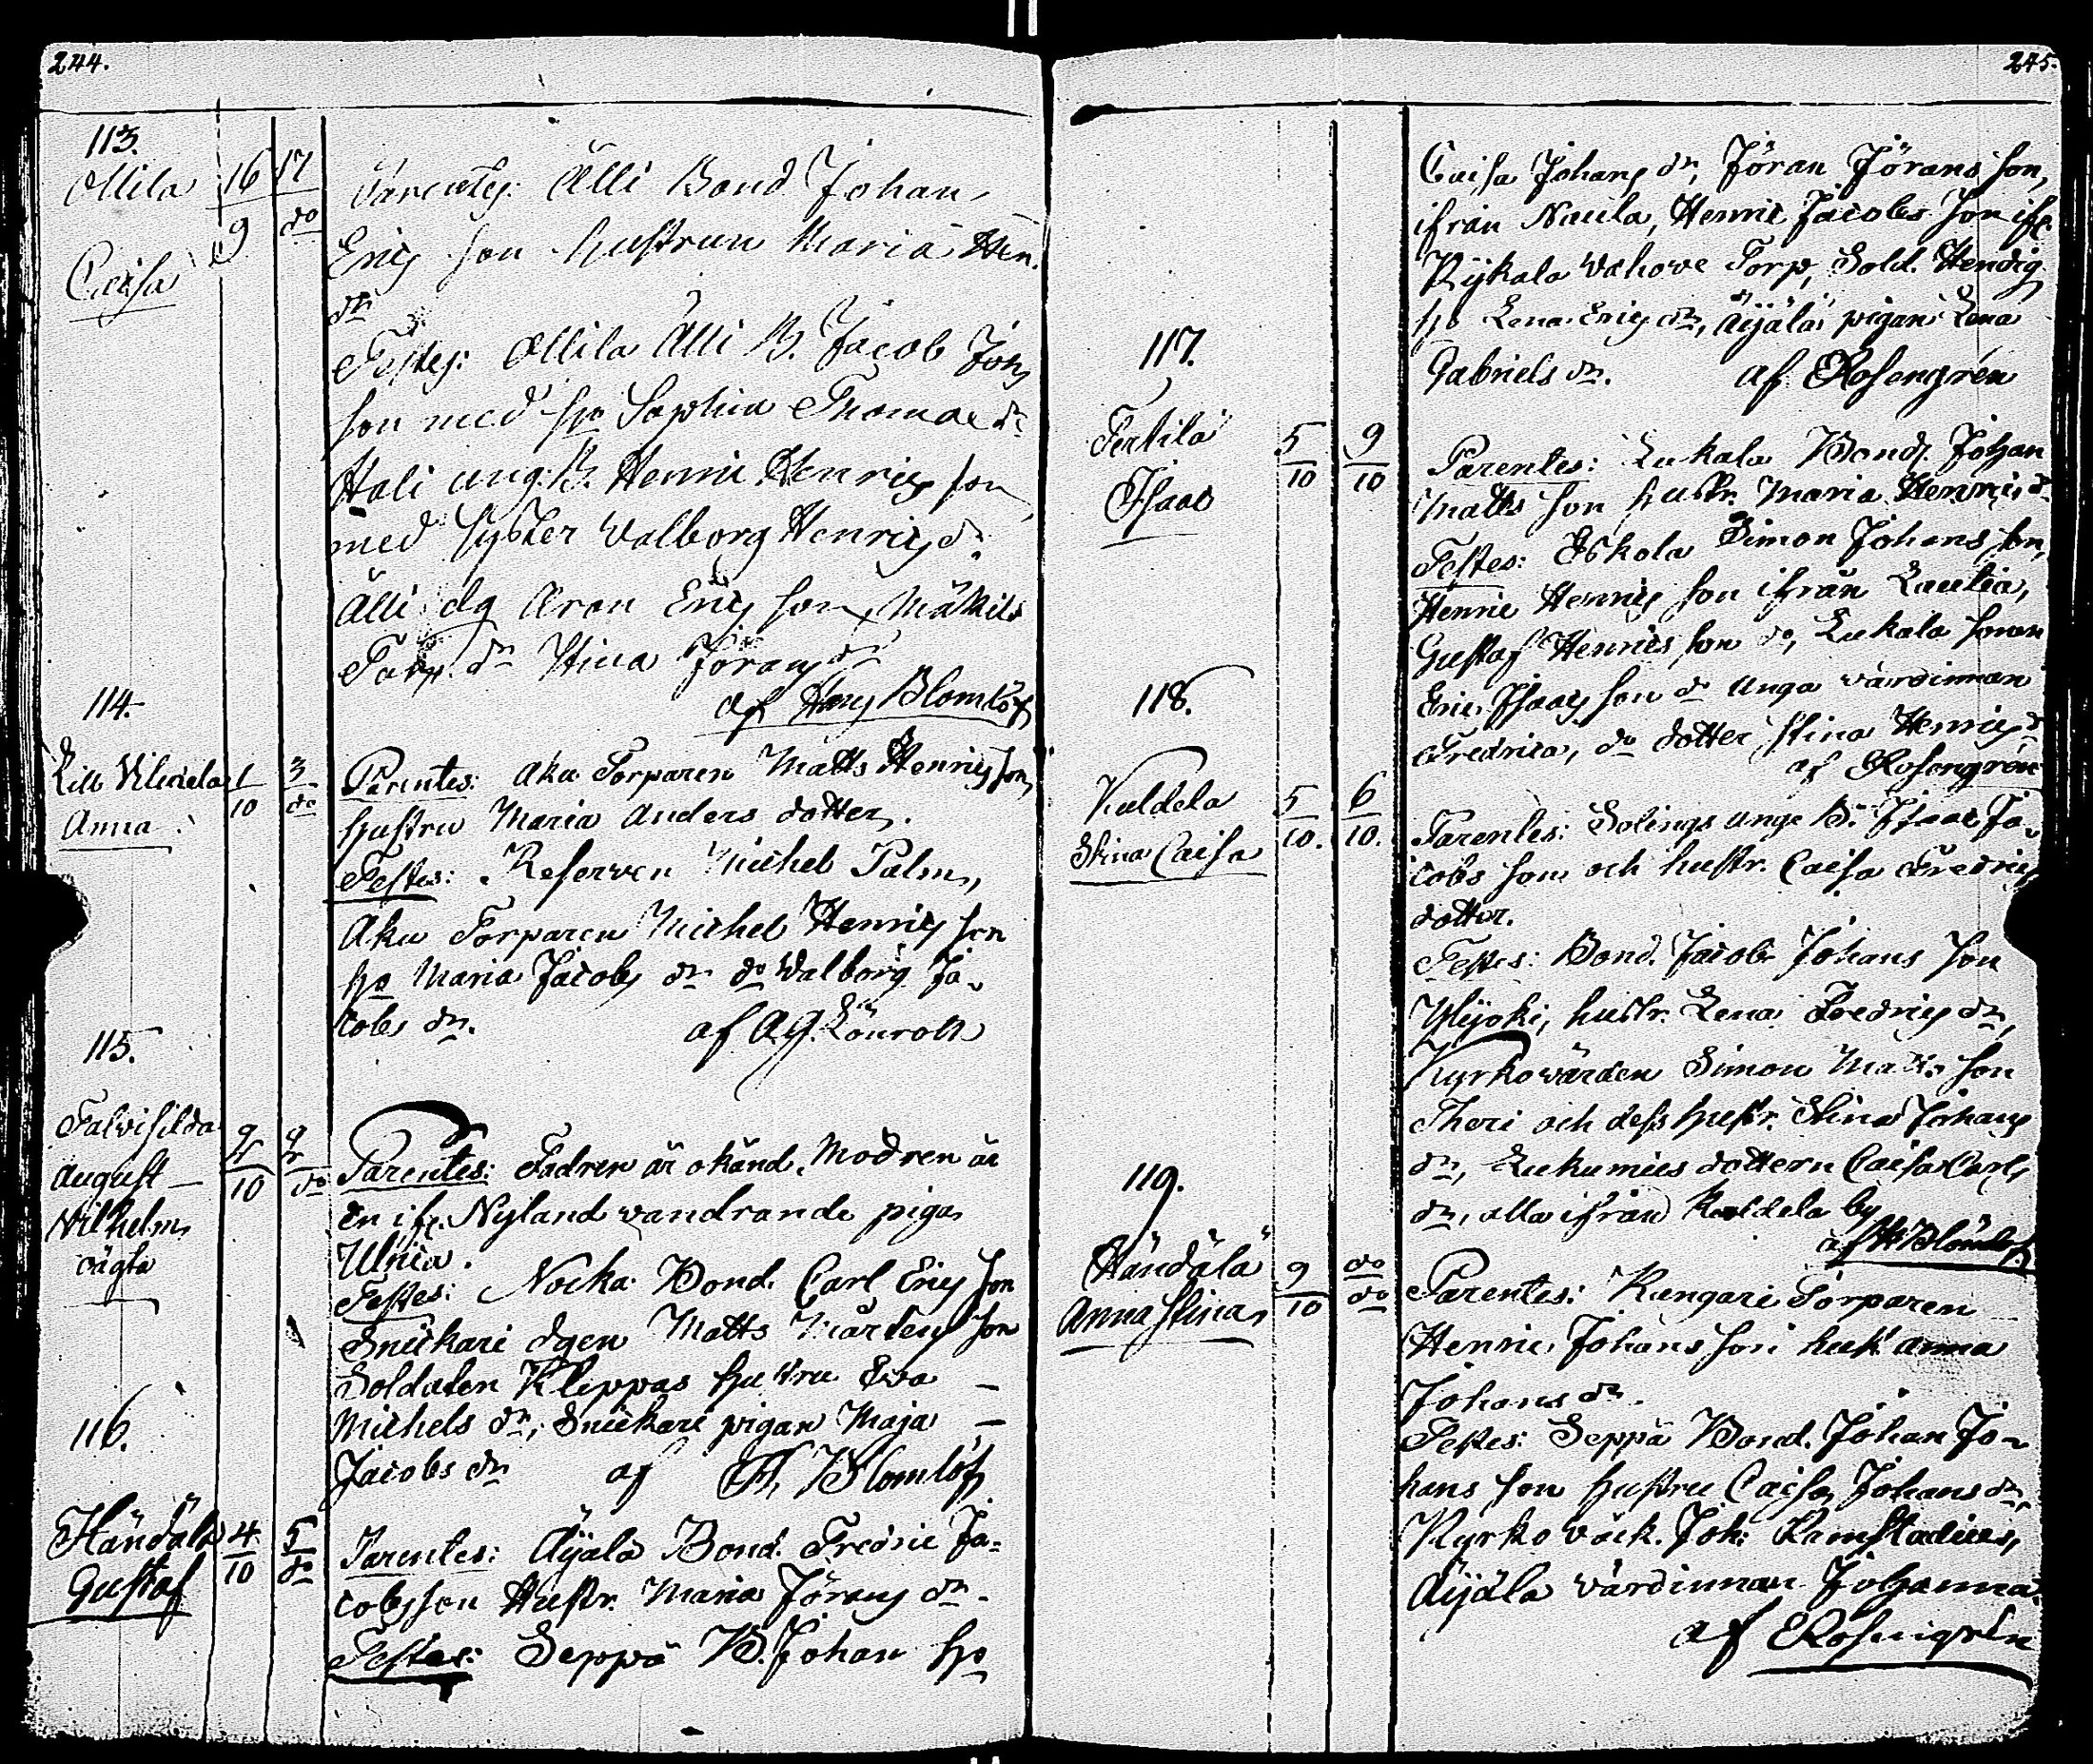 244.
113.
Ollila 16/9 17/do
Caisa
Parentes: Älli Bond Johan
Erics son hustrun Maria Hen.
dr
Testes: Ollila Älli B. Jacob Joh
son med ho Sophia Thomae dr
Hali ung. B. Henric Henrics son
med syster Walborg Henrics dr
Älli dg Aron Erics son,
Torp. dr Stina Jörans dr
af Blomlöf
114.
Lill 1/10 3/do
Anna
Parentes: Aku Torparen Matts Henrics son
hustru Maria Anders dotter.
Testes: Reserven Michel Palm,
Aku Torparen Michel Henrics son
ho Maria Jacobs dr do Walborg Ja-
cobs dr. af A.G. Lönroth
115.
4/10 4/do
August
Wilhelm
oägta
Parentes: Fadren är okänd. Modren är
en ifr. Nyland vandrande piga
Ulrica.
Testes: Nocka Bond. Carl Erics son
Snickari dgen Matts Mårtens son
Soldaten Klippas hustru Eva
Michels dr, Snickari pigan Maja
Jacobs dr af H. Blomlöf
116.
Händälä 4/10 5/do
Gustaf
Parentes: Äyälä Bond. Fredric Ja=
cobsson Hustr. Maria Jörans dr.
Testes: Seppä B. Johan ho
245.
Caisa Johans dr, Jöran Jörans son,
ifrån Naula, Henric Jacobs son ifr.
Rykala Wahove Torp, Sold.
ho Lena Erics dr, Äyälä pigan Lena
Gabriels dr. af Rosengrén
117.
Tertila 5/10 9/10
Isaac
Parentes: Lukala Bond. Johan
Matts son hustr. Maria Henrics dr
Testes: Eskola Simon Johans son,
Henric Henrics son ifrån Lautia,
Gustaf Henrics son do, Lukala sonen
Eric Isaacs son do unga värdinnan
Fredrica, do dotter Stina Henrics dr
af Rosengrén
118.
Kuldela 5/10. 6/10.
Stina Caisa
Parentes: Solings unge B. Isaac Ja-
cobs son och hustr. Caisa Fredrics
dotter.
Testes: Bond. Jacob Johans son
Ylijoki, hustr. Lena Fredrics dr,
Kyrkovärden Simon Matts son
Theri och dess hustr. Stina Johans
dr, dottern Caisa Carls
dr, alla ifrån Kuldela by
af H Blomlöf
119.
Händälä 9/10 do/do
Anna Stina
Parentes: Kangari Torparen
Henric Johans son hust. Anna
Johans dr.
Testes: Seppä Bond. Johan Jo-
hans son hustru Caisa Johans dr,
Kyrko väck. Joh: Ramstadius,
Äyälä värdinnan Johanna.
af E Rosengrén